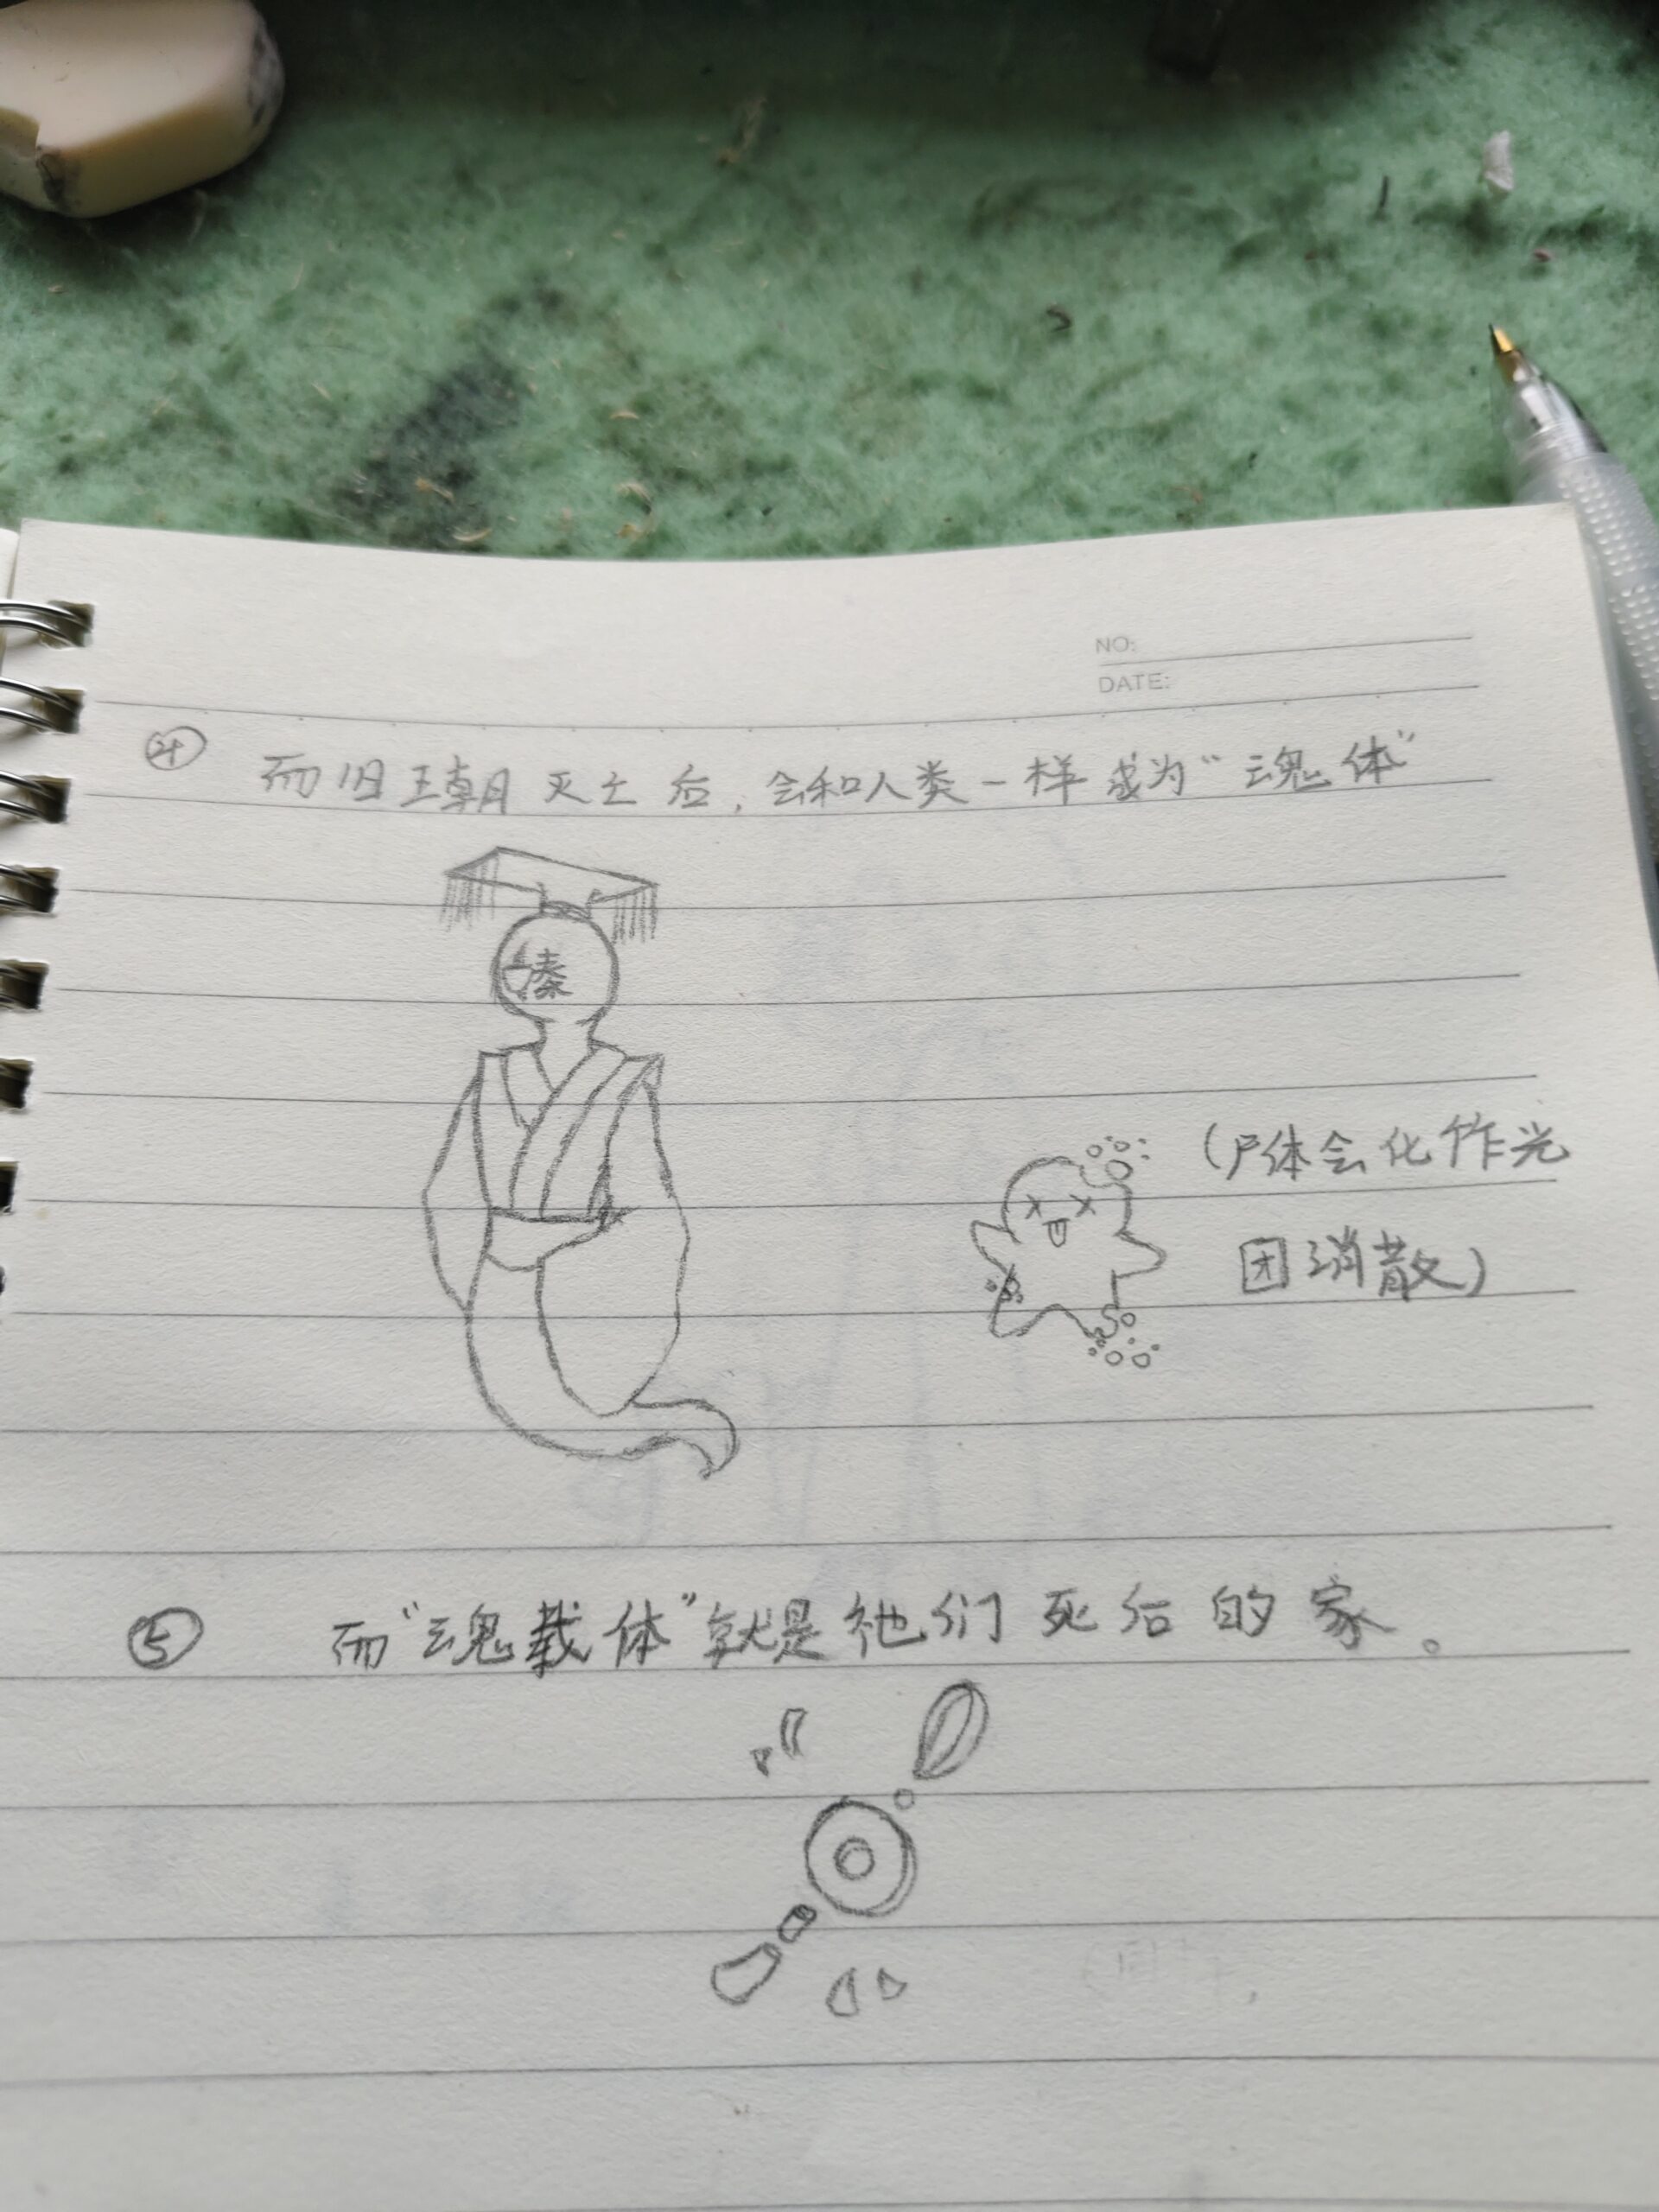 NO:
DATE:
④ 而旧王朝灭亡后，会和人类一样成为“魂体”
秦
（尸体会化作光
团消散）
⑤ 而“魂载体”就是祂们死后的家。